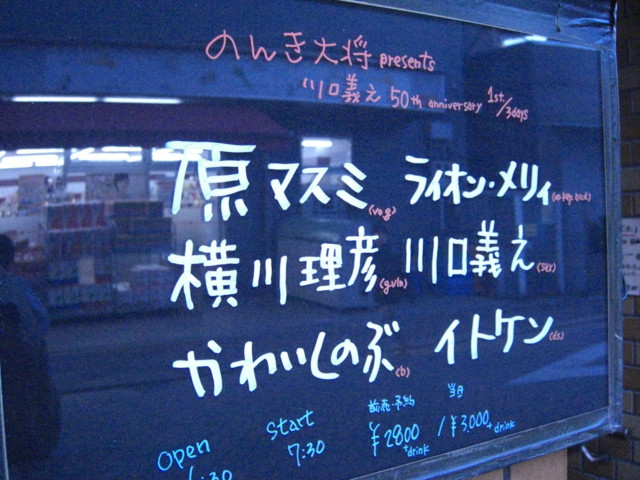 のんき大将 presents
川口義之 50th anniversary 1st/3days
原マスミ(vo.g) ライオン・メリィ
横川理彦(g.vln) 川口義之(sax)
かわいしのぶ(b) イトケン(ds)
open start 前売・予約 当日
7:30 ¥2800+drink / ¥3,000+drink